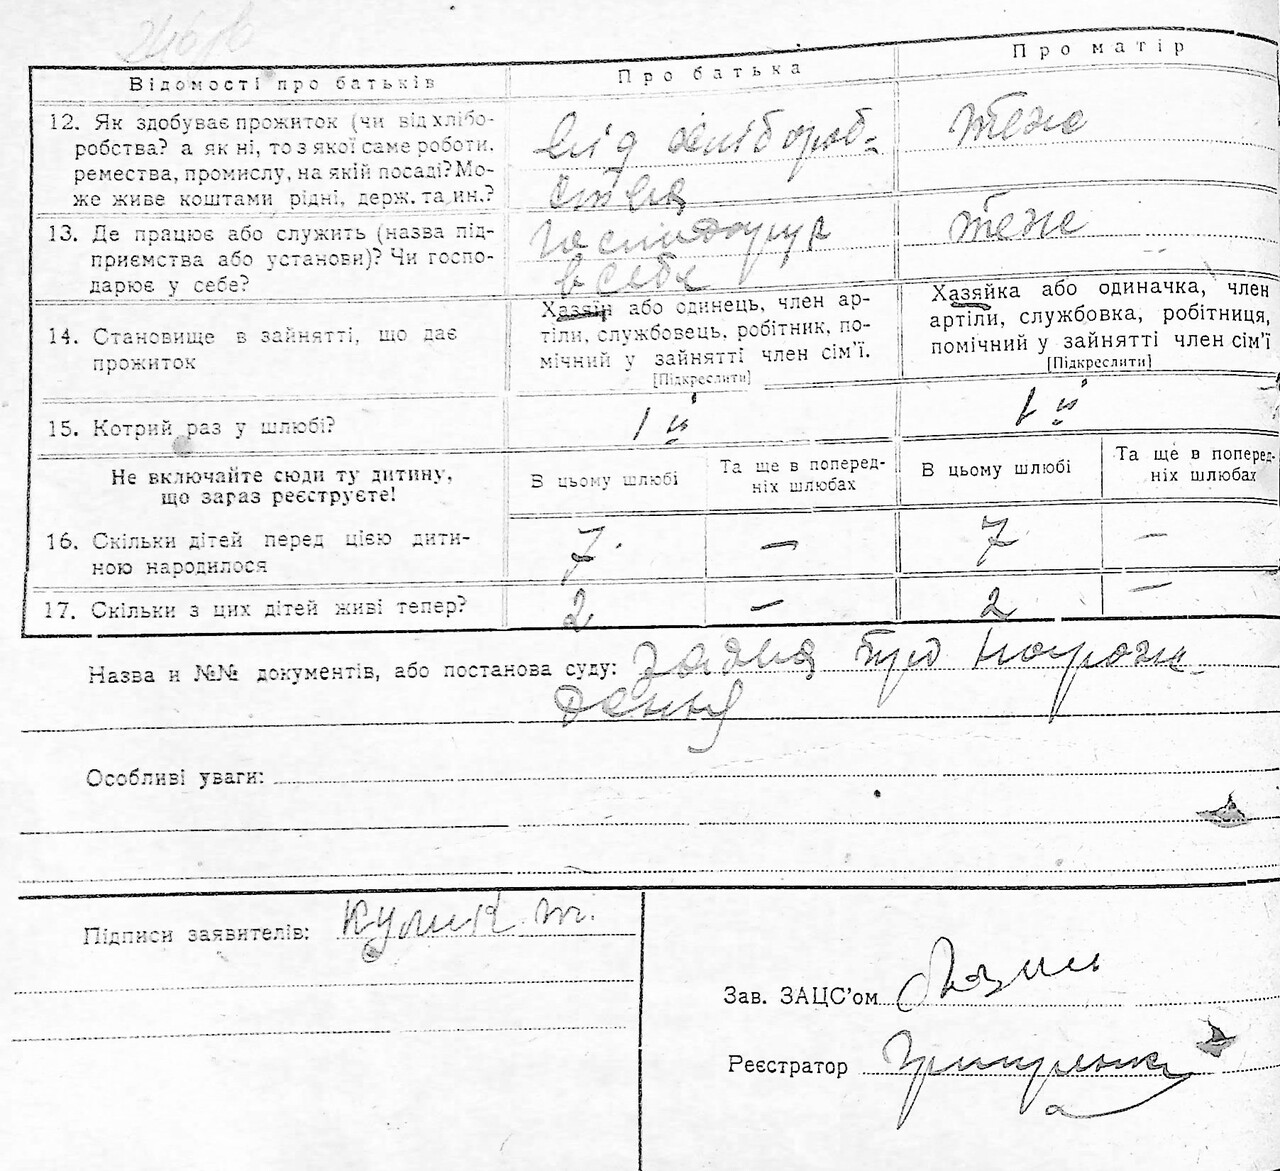 Відомості про батьків
Про батька
Про матір
12. Як здобуває прожиток (чи від хлібо-
робства? а як ні, то з якої саме роботи,
ремества, промислу, на якій посаді? Мо-
же живе коштами рідні, держ. та ин.?
від хлібороб-
ства
теж
13. Де працює або служить (назва під-
приємства або установи)? Чи госпо-
дарює у себе?
в себе
теж
14. Становище в зайнятті, що дає
прожиток
Хазяїн або одинець, член ар-
тіли, службовець, робітник, по-
мічний у зайнятті член сім'ї.
[Підкреслити]
Хазяйка або одиначка, член
артіли, службовка, робітниця,
помічний у зайнятті член сім'ї
[Підкреслити]
15. Котрий раз у шлюбі?
1й
1й
Не включайте сюди ту дитину,
що зараз реєструєте!
В цьому шлюбі
Та ще в поперед-
ніх шлюбах
В цьому шлюбі
Та ще в поперед-
ніх шлюбах
16. Скільки дітей перед цією дити-
ною народилося
7
—
7
—
17. Скільки з цих дітей живі тепер?
2
—
2
—
Назва и №№ документів, або постанова суду: заява про народж-
дення
Особливі уваги:
Підписи заявителів: Кулик
Зав. ЗАЦС'ом
Реєстратор